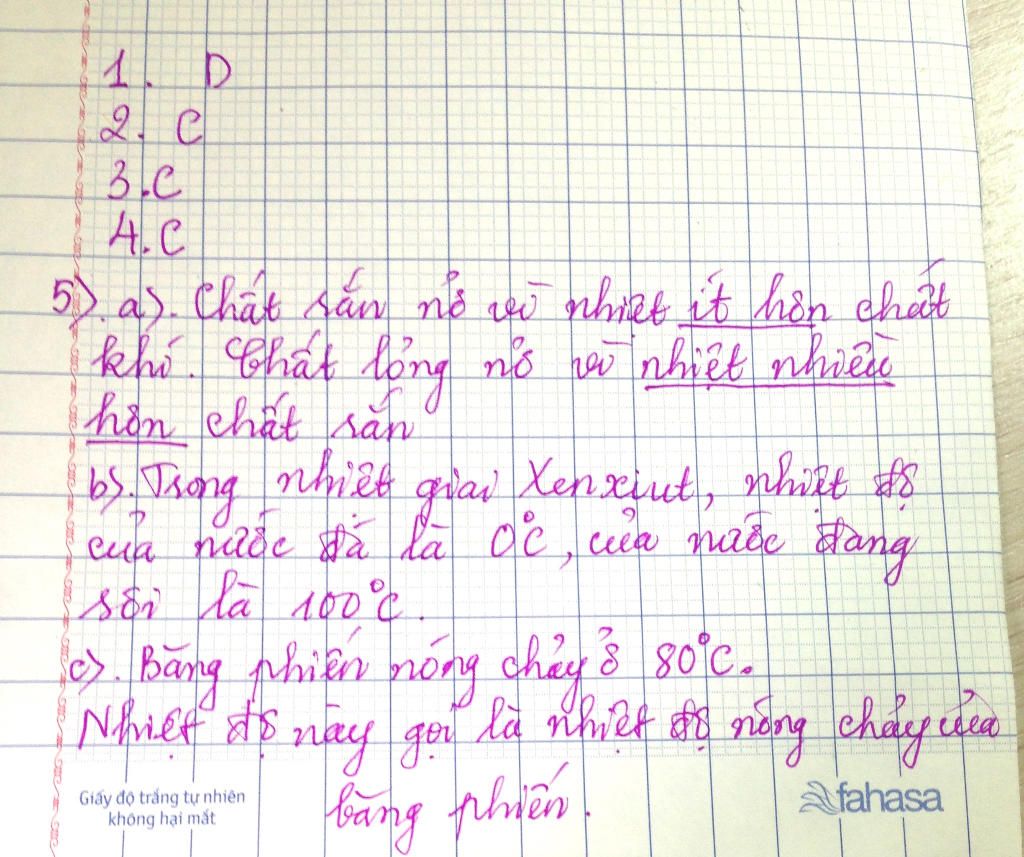 1. D
2. C
3. C
4. C
5). a). Chất rắn nở vì nhiệt ít hơn chất
khí. Chất lỏng nở vì nhiệt nhiều
hơn chất rắn
b). Trong nhiệt giai Xenxiut, nhiệt độ
của nước đá là 0°C, của nước đang
sôi là 100°C.
c). Băng phiến nóng chảy ở 80°C.
Nhiệt độ này gọi là nhiệt độ nóng chảy của
băng phiến.
Giấy độ trắng tự nhiên
không hại mắt
fahasa